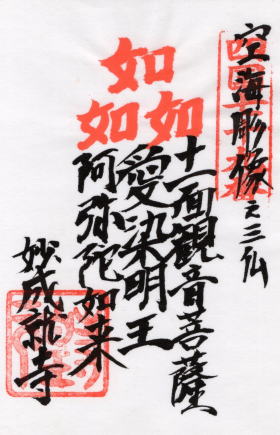 空海彫像之三仏
十一面観音菩薩
愛染明王
阿弥陀如来
如
如如
妙成就寺